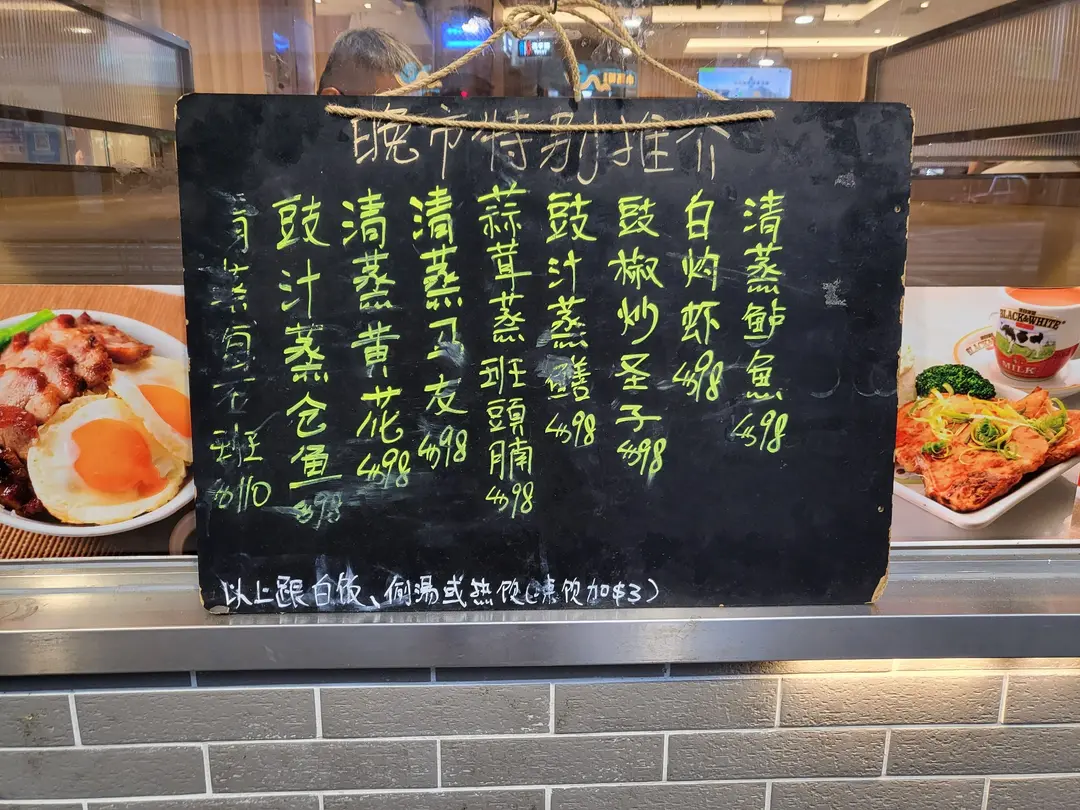 晚市特别推介
清蒸鲈魚 $98
白灼虾 $98
豉椒炒圣子 $98
豉汁蒸鱔 $98
蒜茸蒸班頭腩 $98
清蒸马友 $98
清蒸黄花 $98
豉汁蒸仓鱼 $98
清蒸 班 $110
以上跟白饭、例湯或热饮(凍饮加$3)
BLACK&WHITE
MILK